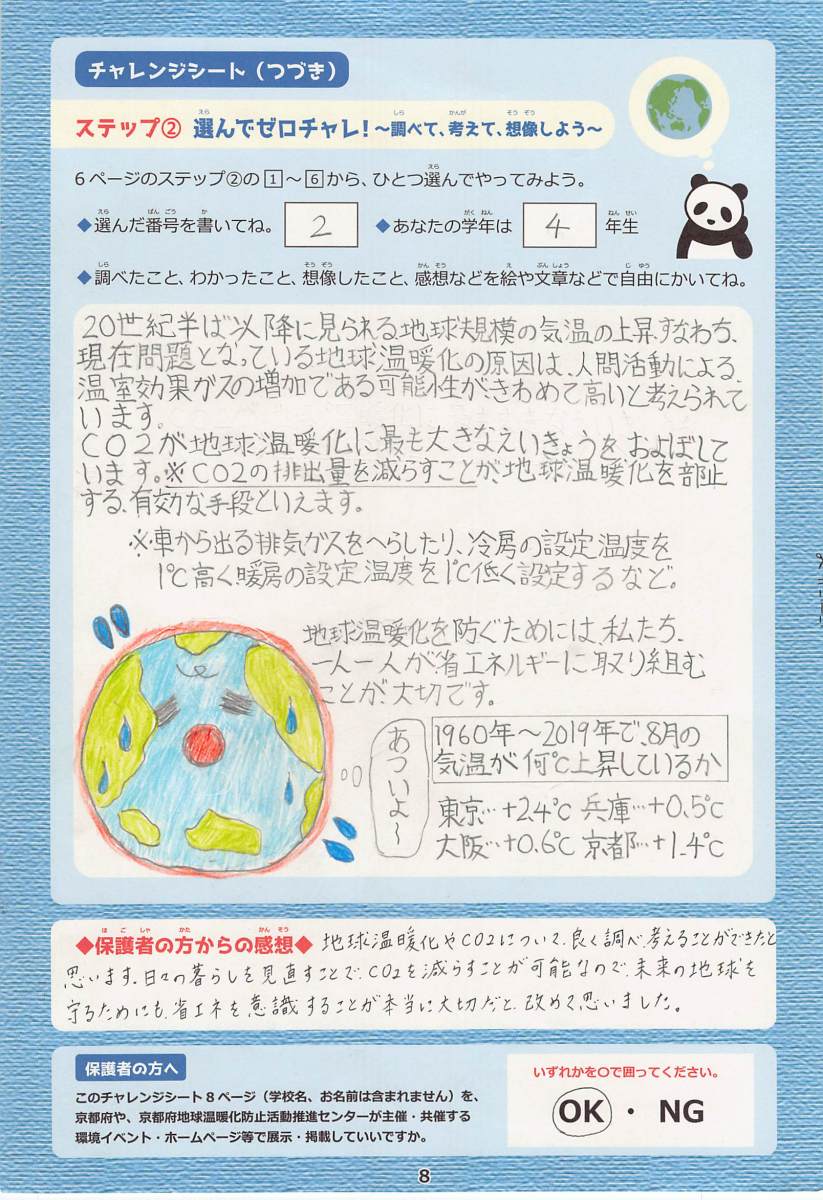 チャレンジシート（つづき）
ステップ② 選んでゼロチャレ！～調べて、考えて、想像しよう～
6ページのステップ②の1～6から、ひとつ選んでやってみよう。
◆選んだ番号を書いてね。 2 ◆あなたの学年は 4 年生
◆調べたこと、わかったこと、想像したこと、感想などを絵や文章などで自由にかいてね。
20世紀半ば以降に見られる地球規模の気温の上昇、すなわち、
現在問題となっている地球温暖化の原因は、人間活動による、
温室効果ガスの増加である可能性が、きわめて高いと考えられて
います。
CO2が地球温暖化に最も大きなえいきょうをおよぼして
います。※CO2の排出量を減らすことが、地球温暖化を部止
する、有効な手段といえます。
※車から出る排気ガスをへらしたり、冷房の設定温度を
1℃高く暖房の設定温度を1℃低く設定するなど。
地球温暖化を防ぐためには、私たち、
一人一人が、省エネルギーに取り組む
ことが、大切です。
あついよ～
1960年～2019年で、8月の
気温が何℃上昇しているか
東京…+2.4℃ 兵庫…+0.5℃
大阪…+0.6℃ 京都…+1.4℃
◆保護者の方からの感想◆ 地球温暖化やCO2について、良く調べ考えることができたと
思います。日々の暮らしを見直すことで、CO2を減らすことが可能なので、未来の地球を
守るためにも、省エネを意識することが本当に大切だと、改めて思いました。
保護者の方へ
このチャレンジシート8ページ（学校名、お名前は含まれません）を、
京都府や、京都府地球温暖化防止活動推進センターが主催・共催する
環境イベント・ホームページ等で展示・掲載していいですか。
いずれかを○で囲ってください。
OK ・ NG
8